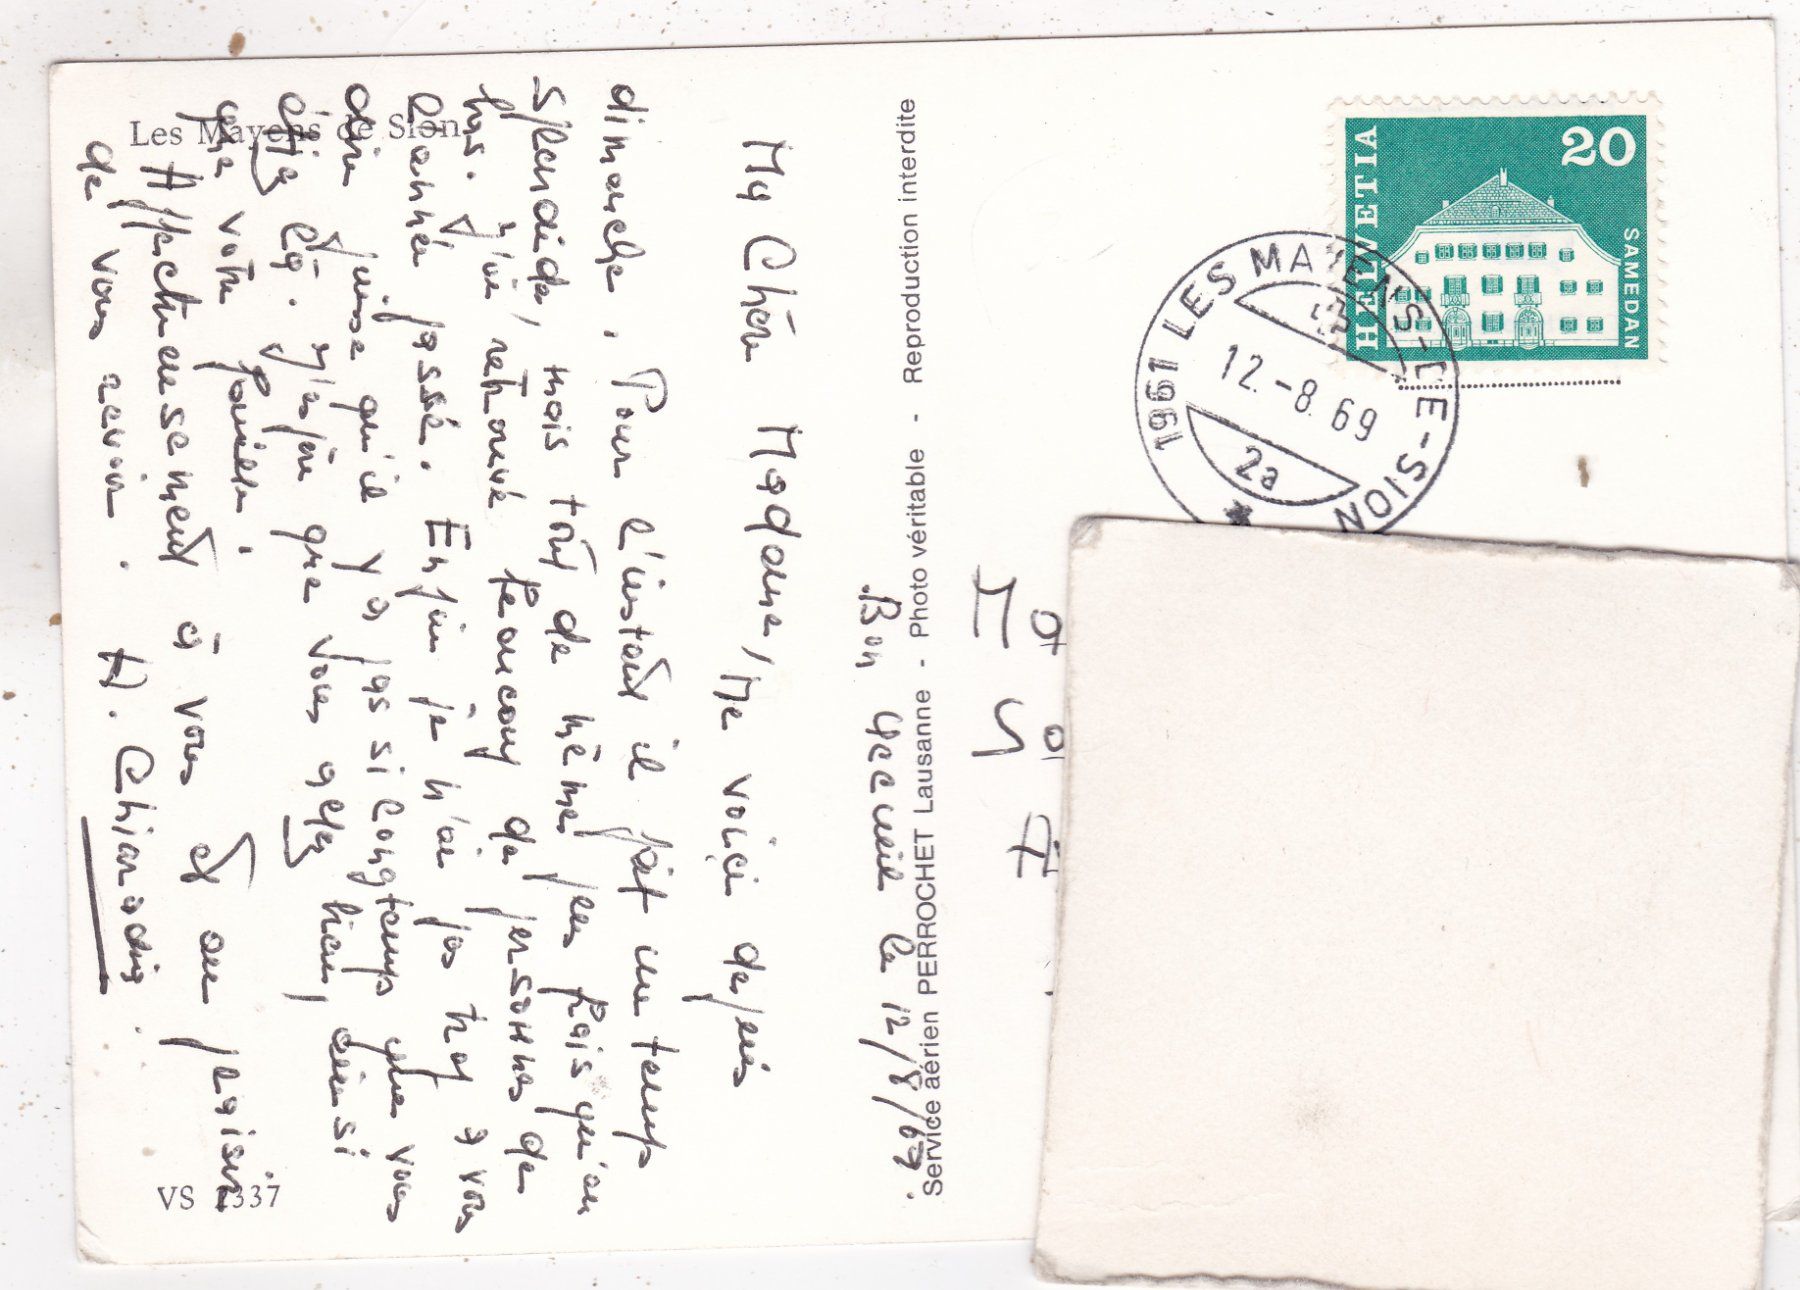 Les Mayens de Sion
Bon Accueil le 12/8/69.
Ma Chère Madame, me voici depuis
dimanche. Pour l'instant il fait un temps
splendide, mais tout de même frais qu'au
bas. J'ai retrouvé beaucoup de personnes de
l'année passée. Enfin je n'ai pas trop à vous
dire puisqu'il y a pas si longtemps que vous
étiez là. J'espère que vous allez bien, ainsi
que votre famille.
Affectueusement à vous et au plaisir
de vous revoir. H. Chiarodia.
VS 1337
Service aérien PERROCHET Lausanne - Photo véritable - Reproduction interdite
HELVETIA
20
SAMEDAN
1961 LES MAYENS-DE-SION
12.-8.69
2a